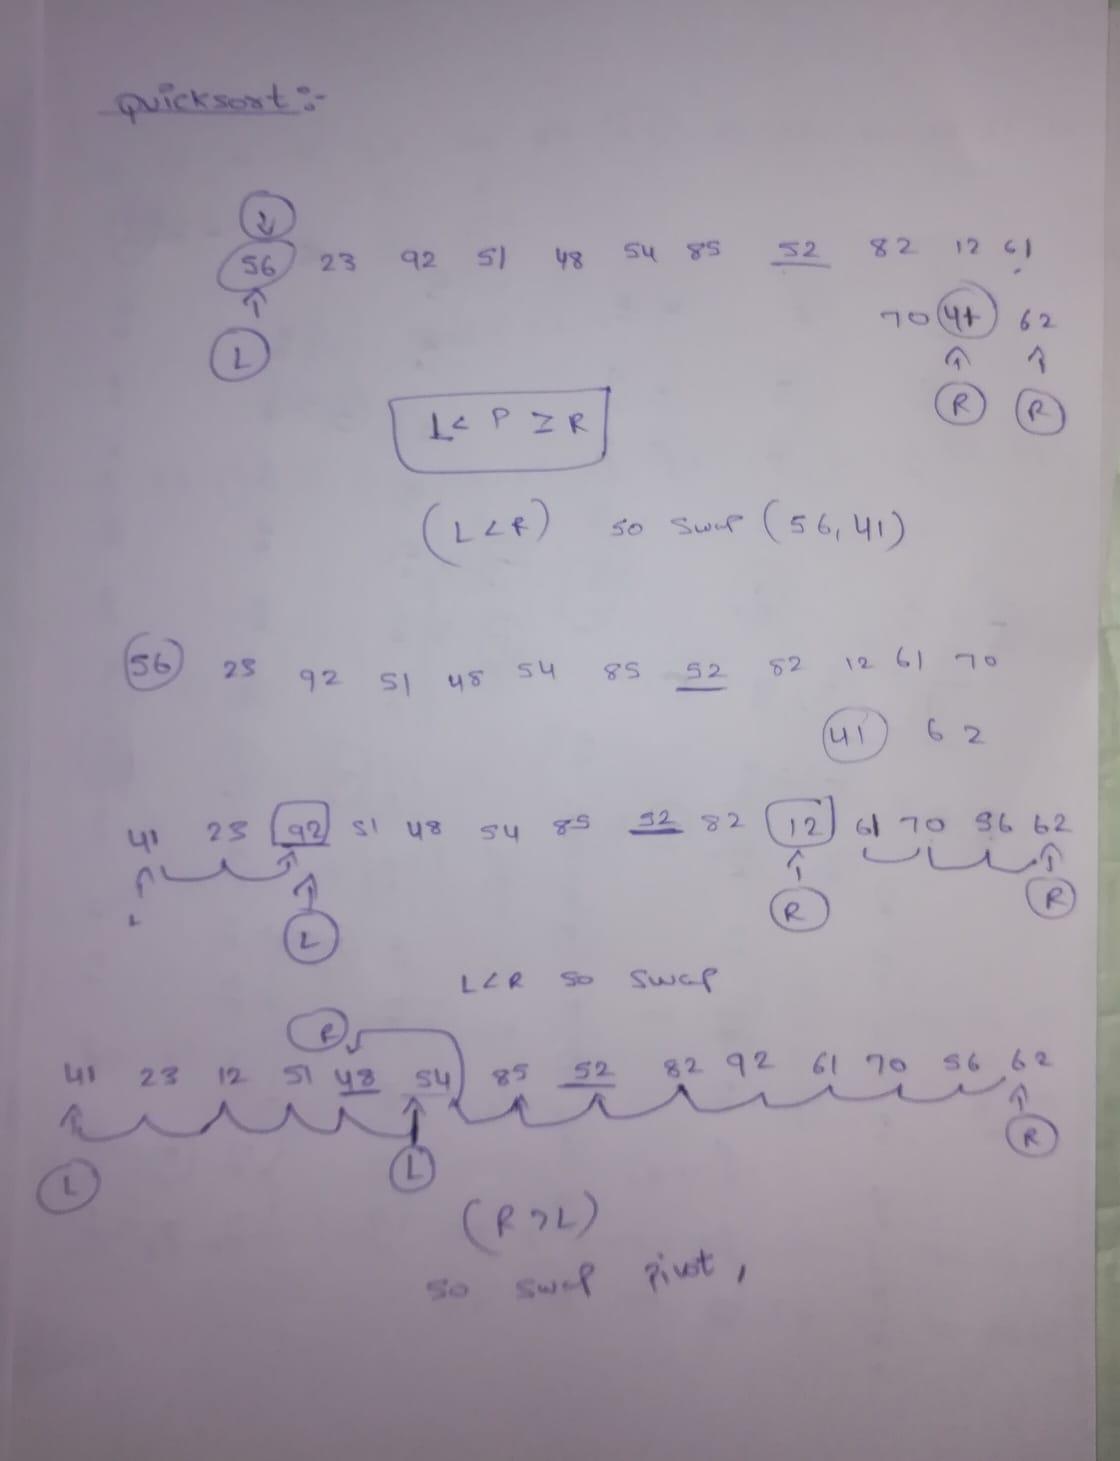 Quicksort :-
56 23 92 51 48 54 85 52 82 12 61
70 41 62
L
R R
L < P ≥ R
(L < R) so swap (56, 41)
56 23 92 51 48 54 85 52 82 12 61 70
41 62
41 23 92 51 48 54 85 52 82 12 61 70 56 62
L
L R R
L < R so swap
R
41 23 12 51 48 54 85 52 82 92 61 70 56 62
L L R
(R > L)
so swap pivot,